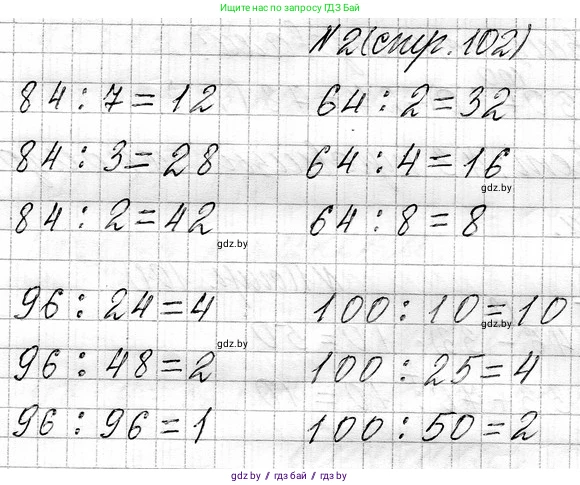 Ищите нас по запросу ГДЗ Бай
№2(стр. 102)
84 : 7 = 12 64 : 2 = 32
84 : 3 = 28 64 : 4 = 16
gdz.by
84 : 2 = 42 64 : 8 = 8
gdz.by
96 : 24 = 4 100 : 10 = 10
gdz.by
gdz.by
96 : 48 = 2 100 : 25 = 4
96 : 96 = 1 100 : 50 = 2
gdz.by / гдз бай / gdz.by